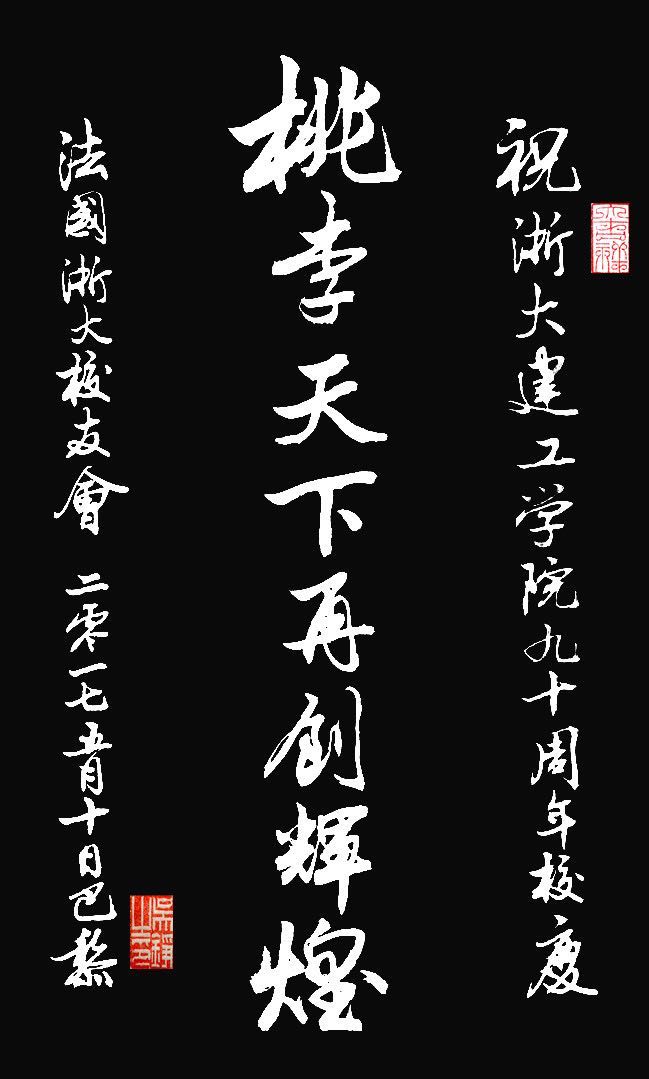 祝浙大建工学院九十周年校慶
桃李天下再創輝煌
法國浙大校友會 二零一七五月十日巴黎